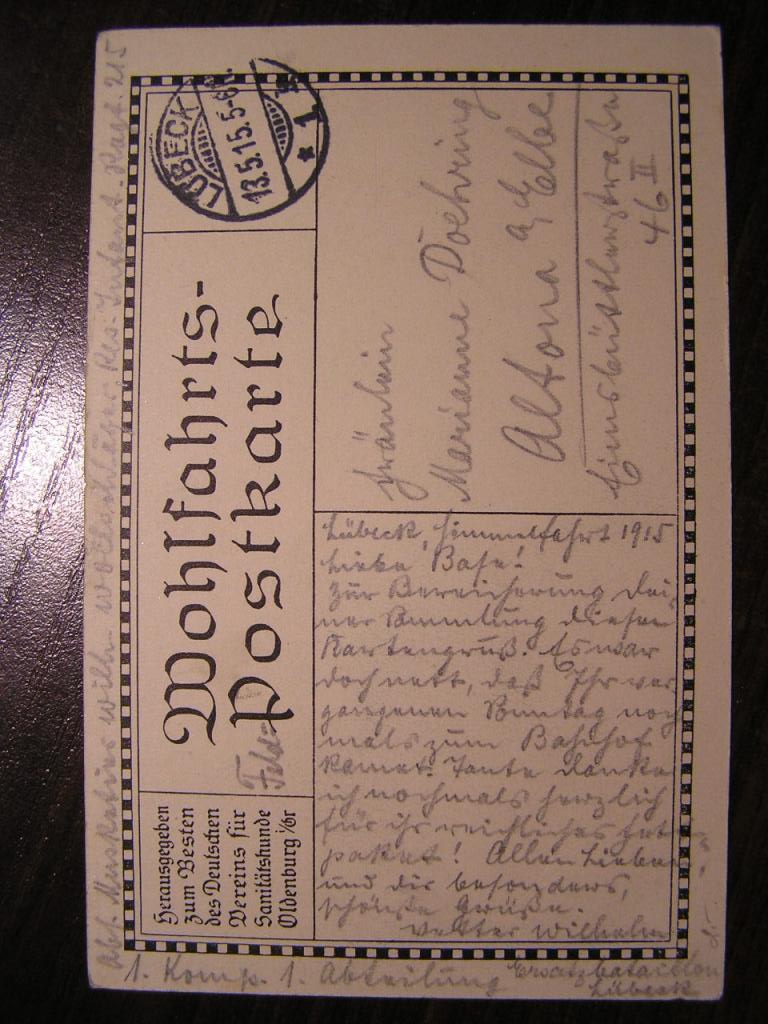 Abs. Musketier Wilh. Wollschläger, Res. Infant. Regt. 215
1. Komp. 1. Abteilung Ersatzbataillon
Lübeck
LÜBECK
13.5.15.5-6N.
* 1
Wohlfahrts-
Feld=Postkarte
Herausgegeben
zum Besten
des Deutschen
Vereins für
Sanitätshunde
Oldenburg i/Gr
Fräulein
Marianne Doehring
Altona a/Elbe
Eimsbüttlerstraße
46 II
Lübeck, Himmelfahrt 1915
Liebe Base!
Zur Bereicherung dei-
ner Sammlung diesen
Kartengruß. Es war
doch nett, daß Ihr ver-
gangenen Sonntag noch
mals zum Bahnhof
kamet. Tante danke
ich nochmals herzlich
für ihr reichliches
paket! Allen Lieben
und dir besonders,
schönste Grüße.
Vetter Wilhelm